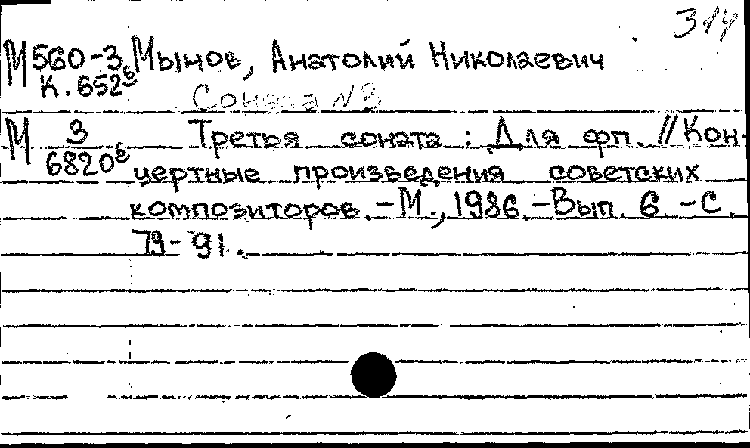 314
М 560-3 Мынов, Анатолий Николаевич
К. 652в
Соната N 3
М 3 Третья соната : Для фп. // Кон-
6820в цертные произведения советских
композиторов. - М., 1986. - Вып. 6 - С.
79-91.